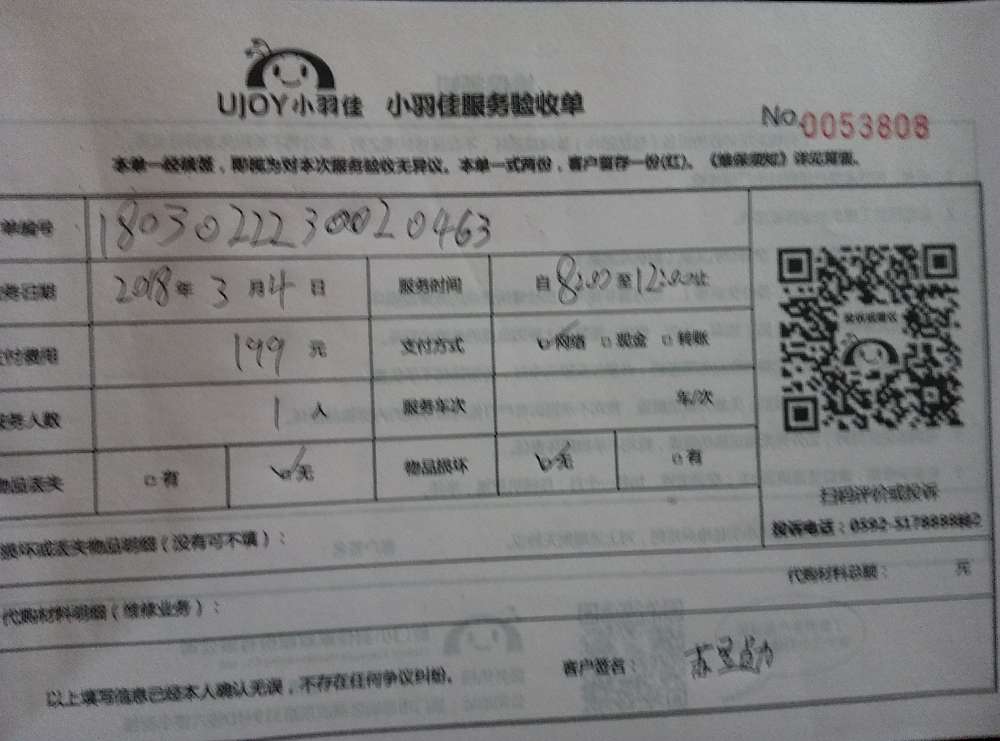 UJOY小羽佳 小羽佳服务验收单
No.0053808
本单一经填签，即视为对本次服务验收无异议。本单一式两份，客户留存一份(红)。《维保须知》详见背面。
单编号 18030222300020463
务日期 2018年3月4日 服务时间 自8:00至12:00止
付费用 199元 支付方式 网络 现金 转账
务人数 1人 服务车次 车/次
物品丢失 有 无 物品损坏 无 有
扫码评价或投诉
投诉电话：0592-5178888
损坏或丢失物品明细（没有可不填）：
代购材料总额： 元
代购材料明细（维修业务）：
以上填写信息已经本人确认无误，不存在任何争议纠纷。 客户签名：